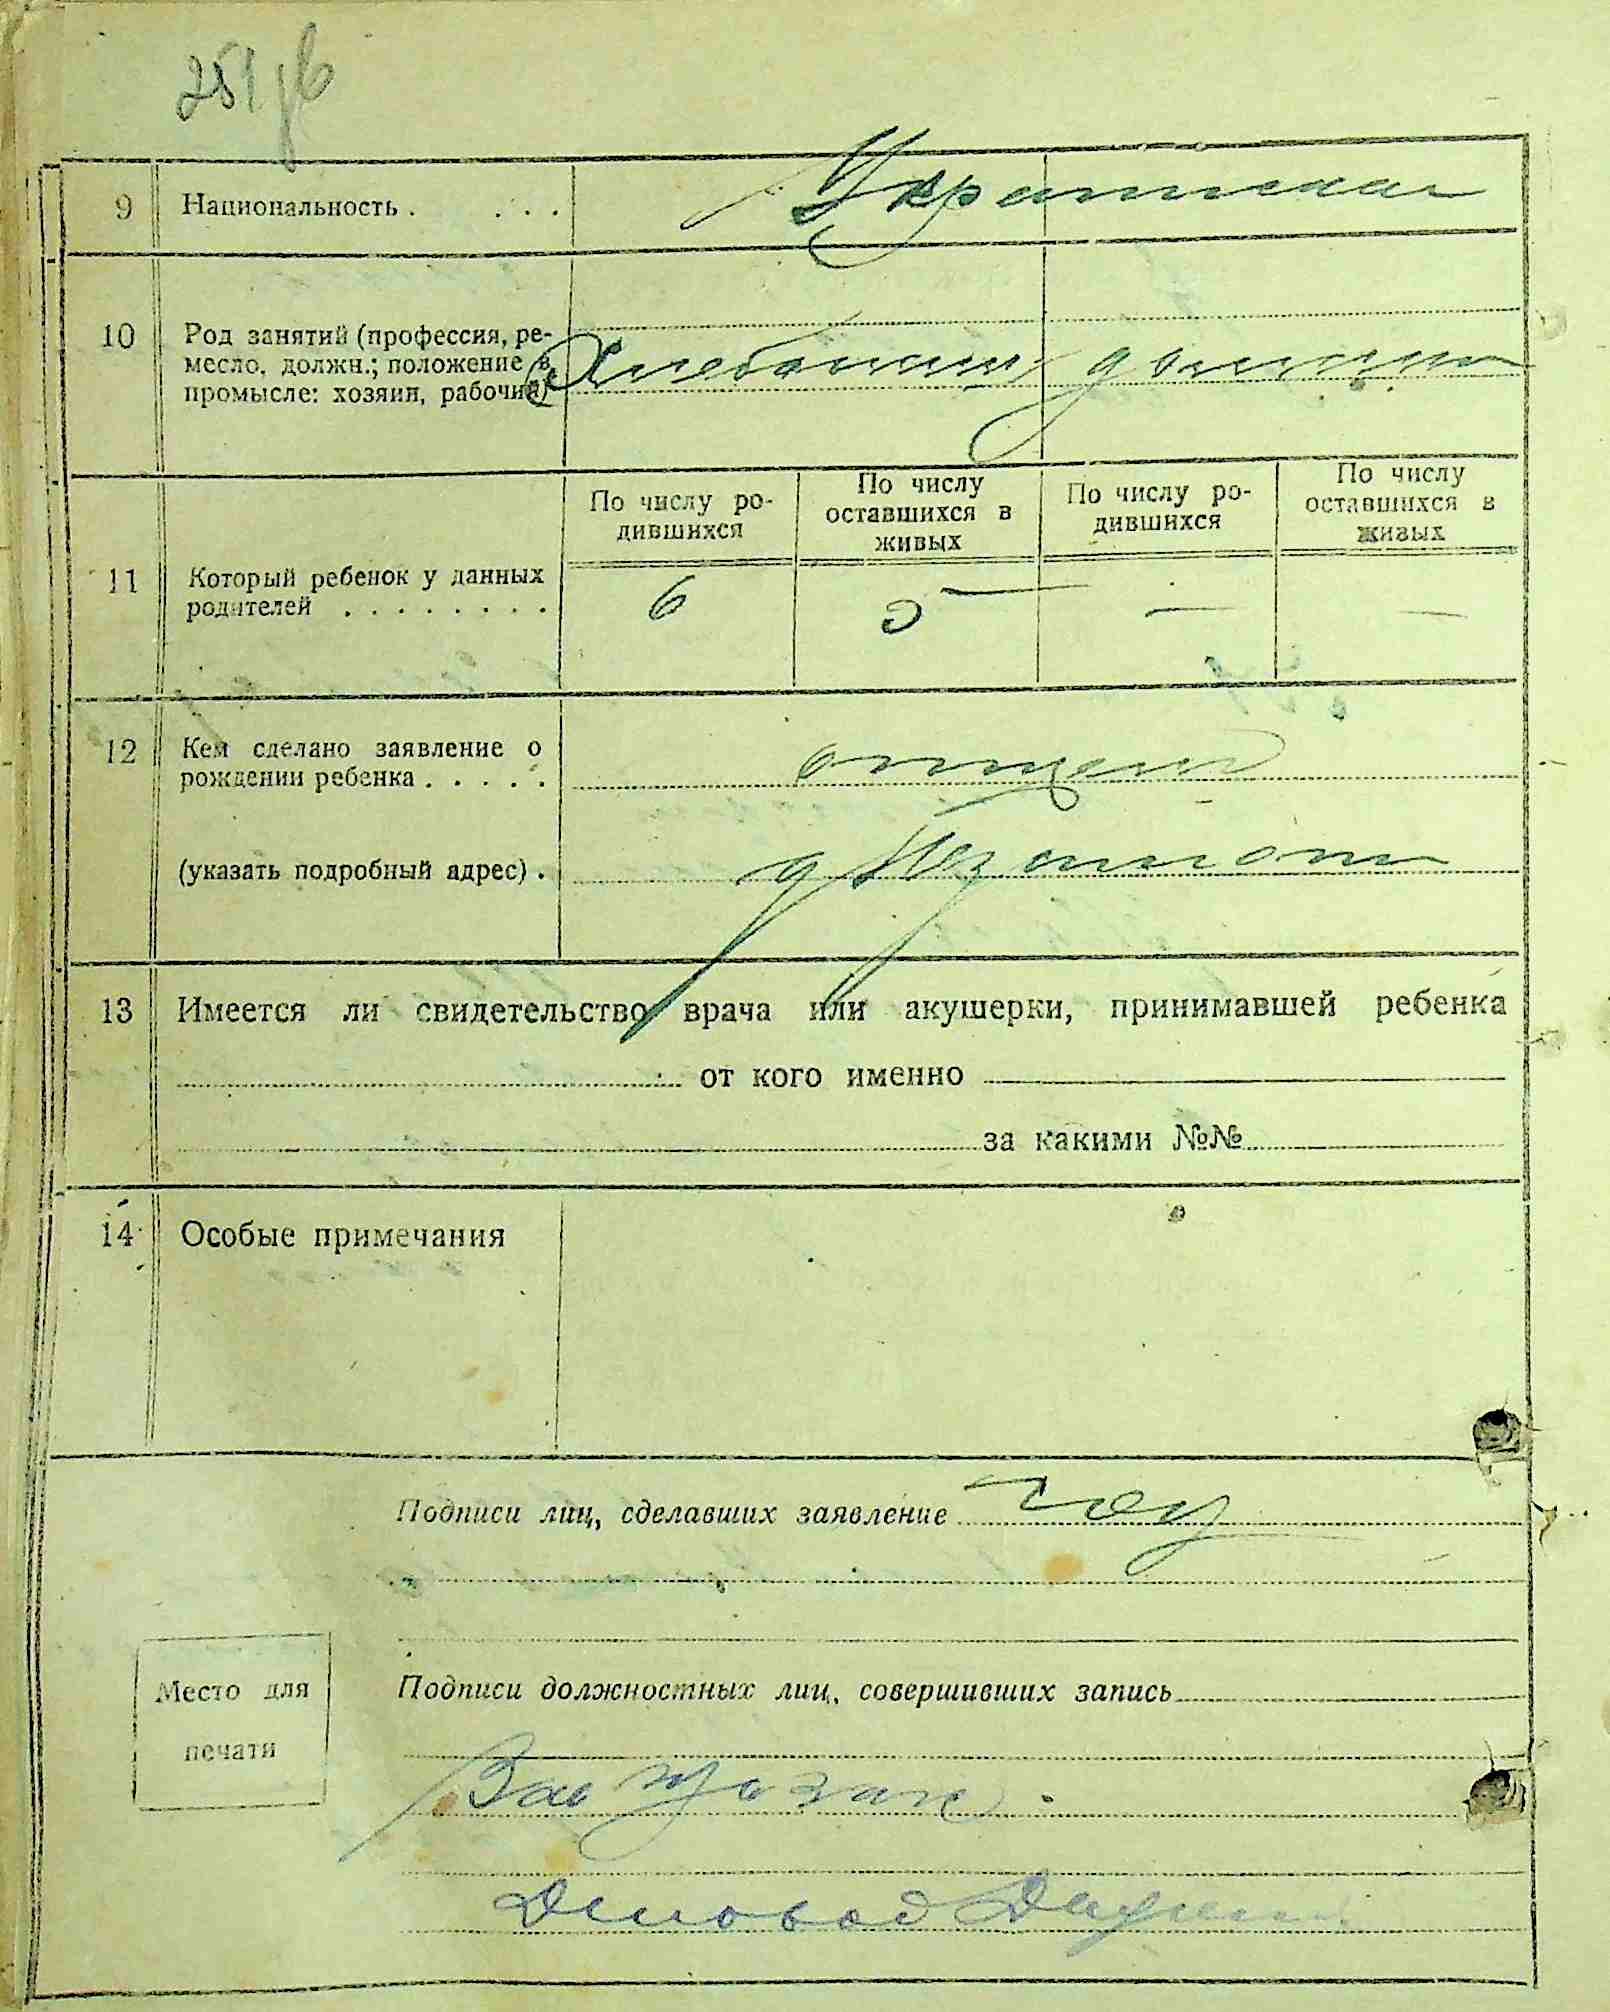 9 Национальность . . . . Украинская
10 Род занятий (профессия, ре-
месло, должн.; положение в
промысле: хозяин, рабочий)
По числу ро-
дившихся
По числу
оставшихся в
живых
По числу ро-
дившихся
По числу
оставшихся в
живых
11 Который ребенок у данных
родителей . . . . . . . . 6 5 — —
12 Кем сделано заявление о
рождении ребенка . . . . . отцем
(указать подробный адрес) .
13 Имеется ли свидетельство врача или акушерки, принимавшей ребенка
от кого именно
за какими №№
14 Особые примечания
Подписи лиц, сделавших заявление
Место для
печати
Подписи должностных лиц, совершивших запись
Зав загсом
Деловод